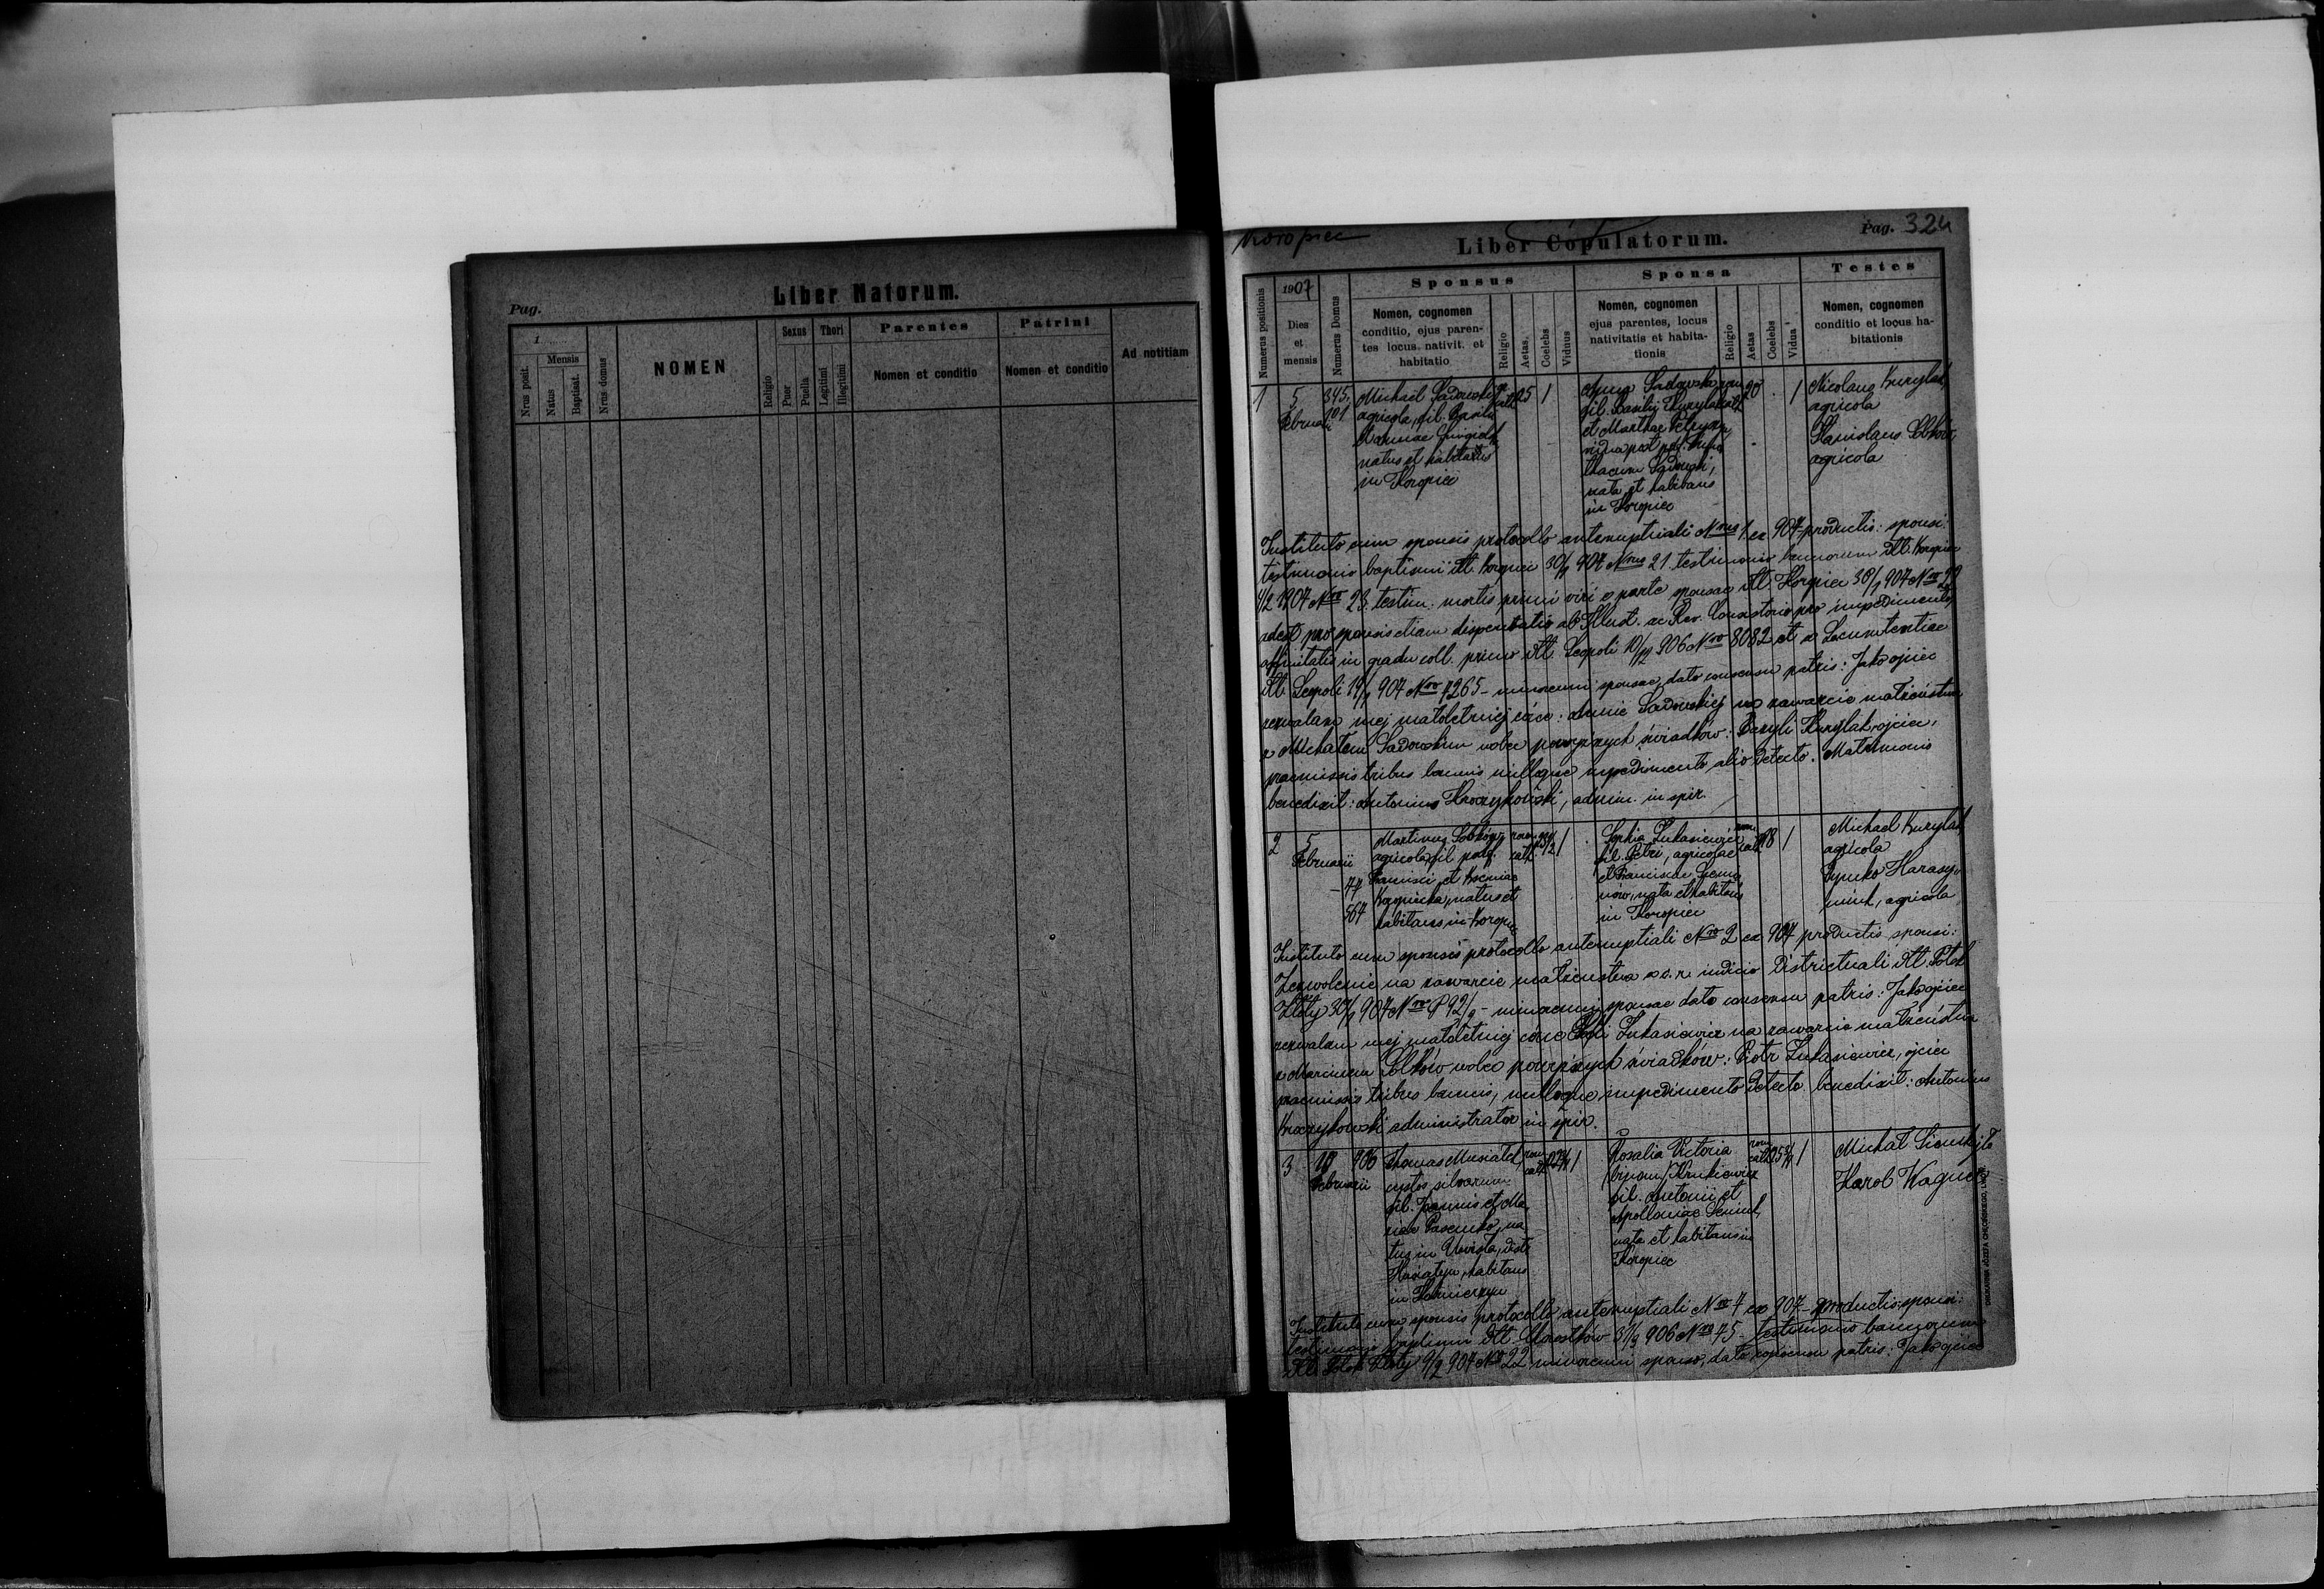 Pag.
Liber Natorum.
1
Nrus posit.
Mensis
Natus
Baptisat.
Nrus domus
NOMEN
Religio
Sexus
Puer
Puella
Thori
Legitimi
Illegitimi
Parentes
Nomen et conditio
Patrini
Nomen et conditio
Ad notitiam
Koropiec
Liber Copulatorum.
Pag. 324
Numerus positionis
1907
Dies
et
mensis
Numerus Domus
Sponsus
Nomen, cognomen
conditio, ejus paren-
tes locus. nativit. et
habitatio
Religio
Aetas.
Coelebs
Viduus
Sponsa
Nomen, cognomen
ejus parentes, locus
nativitatis et habita-
tionis
Religio
Aetas
Coelebs
Vidua
Testes
Nomen, cognomen
conditio et locus ha-
bitationis
1
5
Februarii
345.
101
Michael Sadowski
agricola, fil. Basilii
natus et habitans
in Koropiec
25
1
Anna Sadowska
fil. Basilii Kurylak
et Marthae
nata et habitans
in Koropiec
20
1
Nicolaus Kurylak,
agricola
Stanislaus Sobków,
agricola
Instituto cum sponsis protocollo antenuptiali Nrus 1 ex 907 productis: sponsi:
testimonio baptismi dtt. Koropiec 30/1 907 Nrus 21. testimonio bannorum dtt. Koropiec
1/2 1907 Nro 23. testim. mortis primi viri e parte sponsae dtt. Koropiec 30/1 907 Nro
adest pro sponsis etiam dispensatio ab Illust. ac Rev. Consistorio pro impedimento
affinitatis in gradu coll. primo dtt. Leopoli 10/12 906 Nro 8082 et a Locumtentiae
dtt. Leopoli 19/1 907 Nro 7265 - minorenni sponsae, dato consensu patris: Jako ojciec
zezwalam mej małoletniej córce: Annie Sadowskiej na zawarcie małżeństwa
z Michałem Sadowskim wobec powyższych świadków: Bazyli Kurylak, ojciec,
praemissis tribus bannis nulloque impedimento alio detecto. Matrimonio
benedixit: Antonius Kraczykowski, admin. in spir.
2
5
Februarii
- 47
567
Martinus Sobków,
agricola, fil.
Francisci et
natus et
habitans in Koropiec
rom.
cath.
1
Sophia Łukasiewicz
fil. Petri, agricolae
et Franciscae
nata et habitans
in Koropiec
rom.
cath.
18
1
Michael Kurylak
agricola
Dymko Harasy-
miuk, agricola
Instituto cum sponsis protocollo antenuptiali Nro 2 ex 907 productis sponsi:
Zezwolenie na zawarcie małżeństwa a c. r. iudicio Districtuali dtt. Potok
Złoty 30/1 907 Nro P 92/ - minorenni sponsae dato consensu patris: Jako ojciec
zezwalam mej małoletniej córce Zofii Łukasiewicz na zawarcie małżeństwa
z Marcinem Sobków wobec powyższych świadków: Piotr Łukasiewicz, ojciec
praemissis tribus bannis, nulloque impedimento detecto benedixit: Antonius
Kraczykowski administrator in spir.
3
Februarii
906
Thomas Musiałek,
custos silvarum
fil. Joannis et Ma-
riae na-
tus in Uwisła, distr.
Husiatyn, habitans
in
rom.
cath.
1
Rosalia Victoria
(binom.)
fil. Antonii et
Apolloniae
nata et habitans in
Koropiec
rom.
cath.
1
Michał
Karol Wagner
Instituto cum sponsis protocollo antenuptiali Nro 4 ex 907 - productis sponsi:
testimonio baptismi dtt. 906 Nro 75 - testimonio bannorum
dtt. Potok Złoty 9/2 907 Nro 22 minorenni sponso, dato consensu patris: Jako ojciec